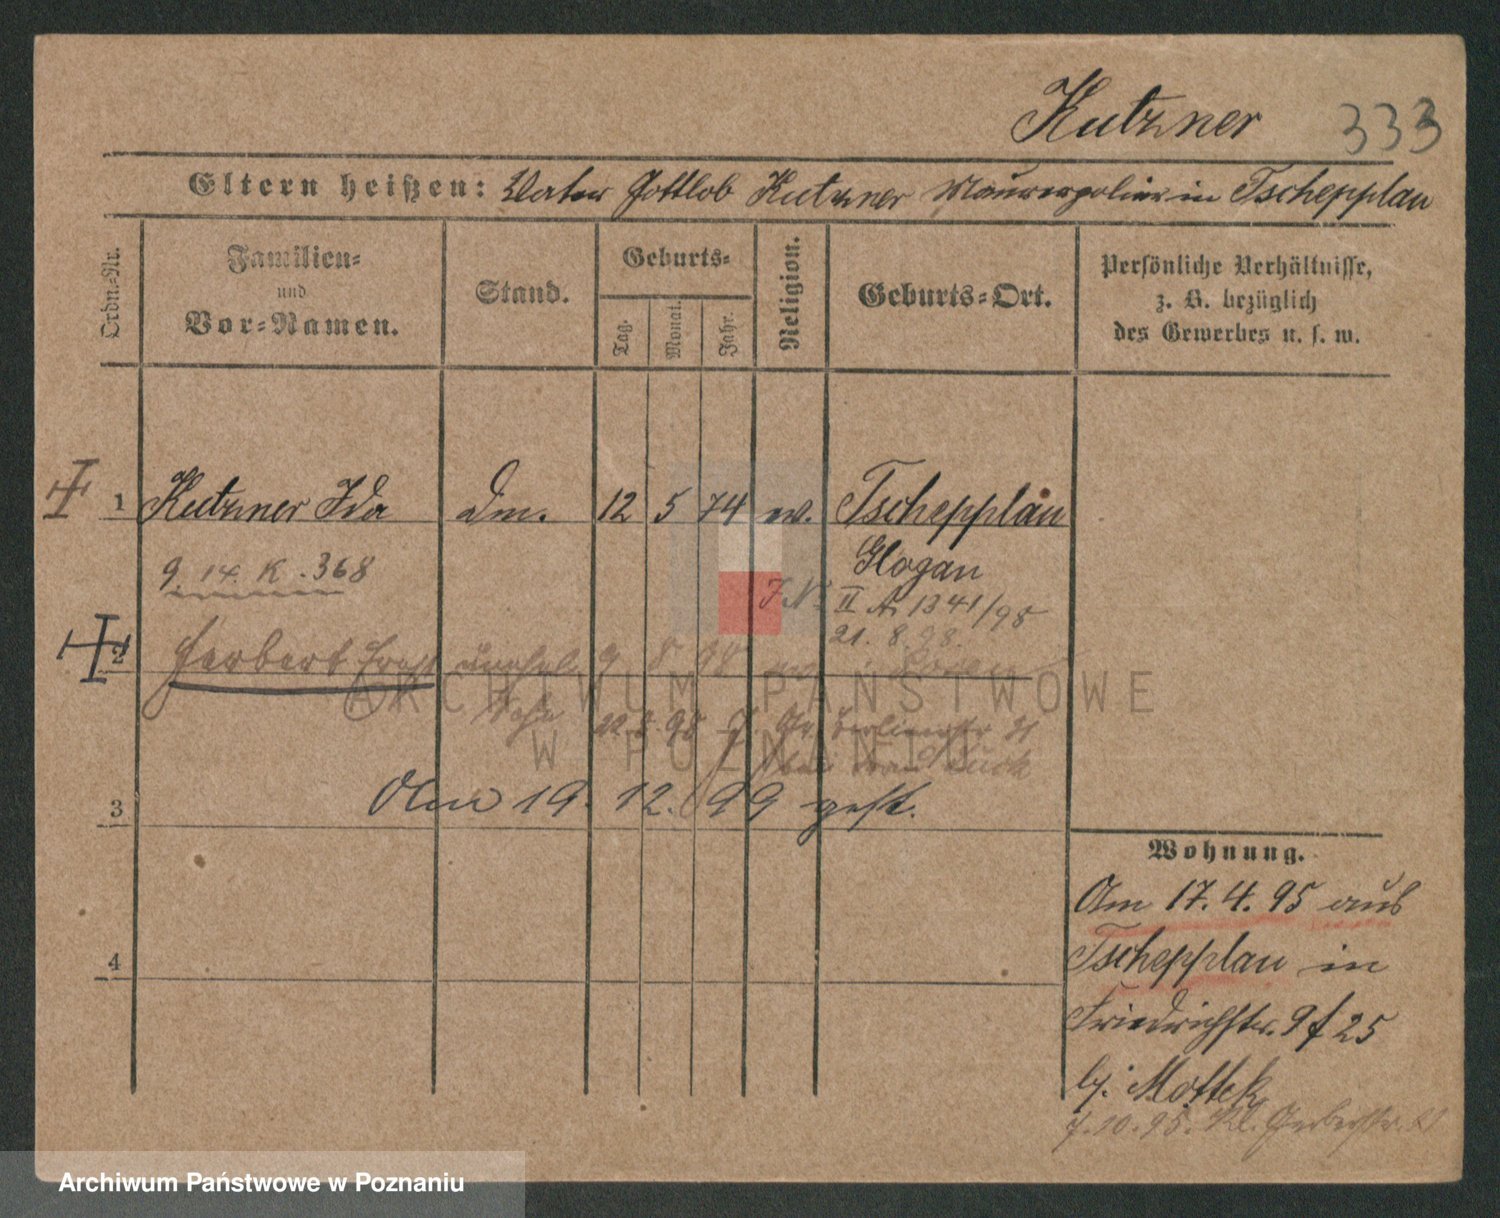 Kutzner 333
Eltern heißen: Vater Gottlob Kutzner Maurerpolier in Tschepplau
Ordn.-Nr.
Familien-
und
Vor-Namen.
Stand.
Geburts-
Tag.
Monat.
Jahr.
Religion.
Geburts-Ort.
Persönliche Verhältnisse,
z. B. bezüglich
des Gewerbes u. s. w.
1 Kutzner Ida Dm. 12 5 74 ev. Tschepplau
Glogau
9. 14. K. 368
J.N. II A. 1341/98
21. 8. 98.
2 Herbert Ernst unehel. 9 8 98 ev. Posen
Sohn 22. 8. 98 Berlinerstr
bei
3 Am 19. 12. 99 gest.
4
Wohnung.
Am 17. 4. 95 aus
Tschepplau in
Friedrichstr. 9 f 25
by. Mottek
7. 10. 95. Kl. Gerberstr.
ARCHIWUM PAŃSTWOWE
W POZNANIU
Archiwum Państwowe w Poznaniu